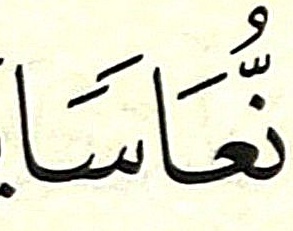 نُّعَاسًا